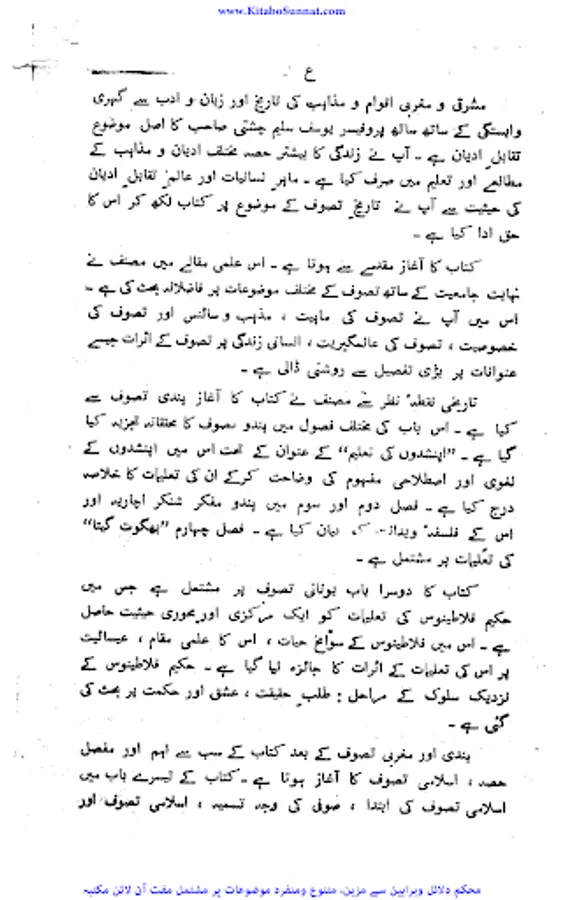 www.KitaboSunnat.com
ع
مشرق و مغربی اقوام و مذاہب کی تاریخ اور زبان و ادب سے گہری
وابستگی کے ساتھ ساتھ پروفیسر یوسف سلیم چشتی صاحب کا اصل موضوع
تقابل ادیان ہے ۔ آپ نے زندگی کا بیشتر حصہ مختلف ادیان و مذاہب کے
مطالعے اور تعلیم میں صرف کیا ہے ۔ ماہر لسانیات اور عالم تقابل ادیان
کی حیثیت سے آپ نے تاریخ تصوف کے موضوع پر کتاب لکھ کر اس کا
حق ادا کیا ہے ۔
کتاب کا آغاز مقدمے سے ہوتا ہے ۔ اس علمی مقالے میں مصنف نے
نہایت جامعیت کے ساتھ تصوف کے مختلف موضوعات پر فاضلانہ بحث کی ہے ۔
اس میں آپ نے تصوف کی ماہیت ، مذہب و سائنس اور تصوف کی
خصوصیت ، تصوف کی عالمگیریت ، انسانی زندگی پر تصوف کے اثرات جیسے
عنوانات پر بڑی تفصیل سے روشنی ڈالی ہے ۔
تاریخی نقطۂ نظر سے مصنف نے کتاب کا آغاز ہندی تصوف سے
کیا ہے ۔ اس باب کی مختلف فصول میں ہندو تصوف کا محققانہ تجزیہ کیا
گیا ہے ۔ ”اپنشدوں کی تعلیم“ کے عنوان کے تحت اس میں اپنشدوں کے
لغوی اور اصطلاحی مفہوم کی وضاحت کرکے ان کی تعلیمات کا خلاصہ
درج کیا ہے ۔ فصل دوم اور سوم میں ہندو مفکر شنکر اچاریہ اور
اس کے فلسفۂ بیان کیا ہے ۔ فصل چہارم ”بھگوت گیتا“
کی تعلیمات پر مشتمل ہے ۔
کتاب کا دوسرا باب یونانی تصوف پر مشتمل ہے جس میں
حکیم فلاطینوس کی تعلیمات کو ایک مرکزی اور محوری حیثیت حاصل
ہے ۔ اس میں فلاطینوس کے سوانح حیات ، اس کا علمی مقام ، عیسائیت
پر اس کی تعلیمات کے اثرات کا جائزہ لیا گیا ہے ۔ حکیم فلاطینوس کے
نزدیک سلوک کے مراحل : طلب حقیقت ، عشق اور حکمت پر بحث کی
گئی ہے ۔
ہندی اور مغربی تصوف کے بعد کتاب کے سب سے اہم اور مفصل
حصہ ، اسلامی تصوف کا آغاز ہوتا ہے ۔ کتاب کے تیسرے باب میں
اسلامی تصوف کی ابتدا ، صوفی کی وجہ تسمیہ ، اسلامی تصوف اور
محکم دلائل وبرابین سے مزین، متنوع ومنفرد موضوعات پر مشتمل مفت آن لائن مکتبہ